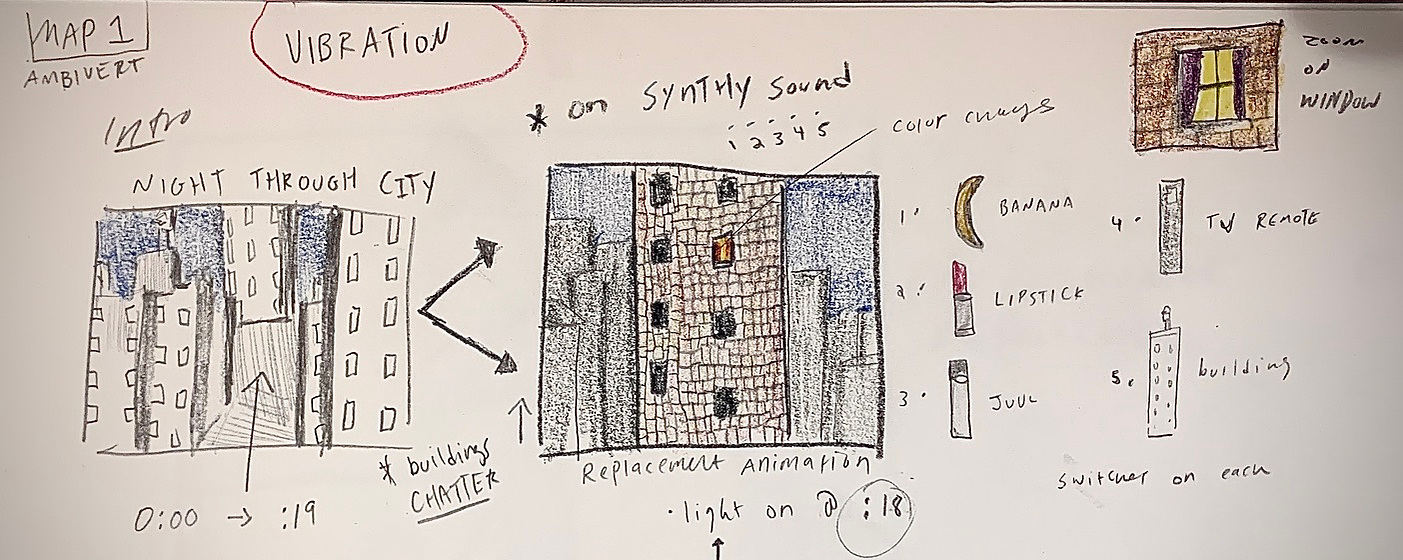 MAP 1
AMBIVERT
VIBRATION
Intro
NIGHT THROUGH CITY
0:00 → :19
* buildings
CHATTER
* on SYNTHY Sound
1 2 3 4 5
color changes
Replacement Animation
• light on @ :18
ZOOM
ON
WINDOW
1. BANANA
2. LIPSTICK
3. JUUL
4. TV REMOTE
5. building
switches on each